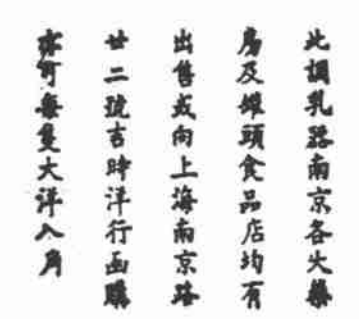 此調乳器南京各大藥
房及罐頭食品店均有
出售或向上海南京路
廿二號吉時洋行函購
亦可每隻大洋八角